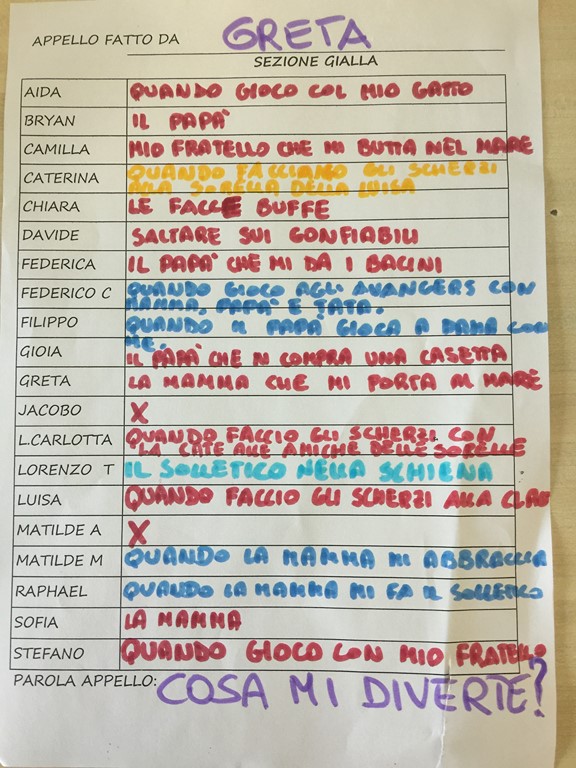 APPELLO FATTO DA GRETA
SEZIONE GIALLA
AIDA QUANDO GIOCO COL MIO GATTO
BRYAN IL PAPA'
CAMILLA MIO FRATELLO CHE MI BUTTA NEL MARE
CATERINA QUANDO FACCIAMO GLI SCHERZI
ALLA SORELLA DELLA LUISA
CHIARA LE FACCE BUFFE
DAVIDE SALTARE SUI GONFIABILI
FEDERICA IL PAPA' CHE MI DA I BACINI
FEDERICO C QUANDO GIOCO AGLI AVANGERS CON
MAMMA, PAPA' E TATA.
FILIPPO QUANDO IL PAPA' GIOCA A DAMA CON
ME.
GIOIA IL PAPA' CHE MI COMPRA UNA CASETTA
GRETA LA MAMMA CHE MI PORTA AL MARE
JACOBO X
L.CARLOTTA QUANDO FACCIO GLI SCHERZI CON
LA CATE ALLE AMICHE DELLE SORELLE
LORENZO T IL SOLLETICO NELLA SCHIENA
LUISA QUANDO FACCIO GLI SCHERZI ALLA
MATILDE A X
MATILDE M QUANDO LA MAMMA MI ABBRACCIA
RAPHAEL QUANDO LA MAMMA MI FA IL SOLLETICO
SOFIA LA MAMMA
STEFANO QUANDO GIOCO CON MIO FRATELLO
PAROLA APPELLO: COSA MI DIVERTE?